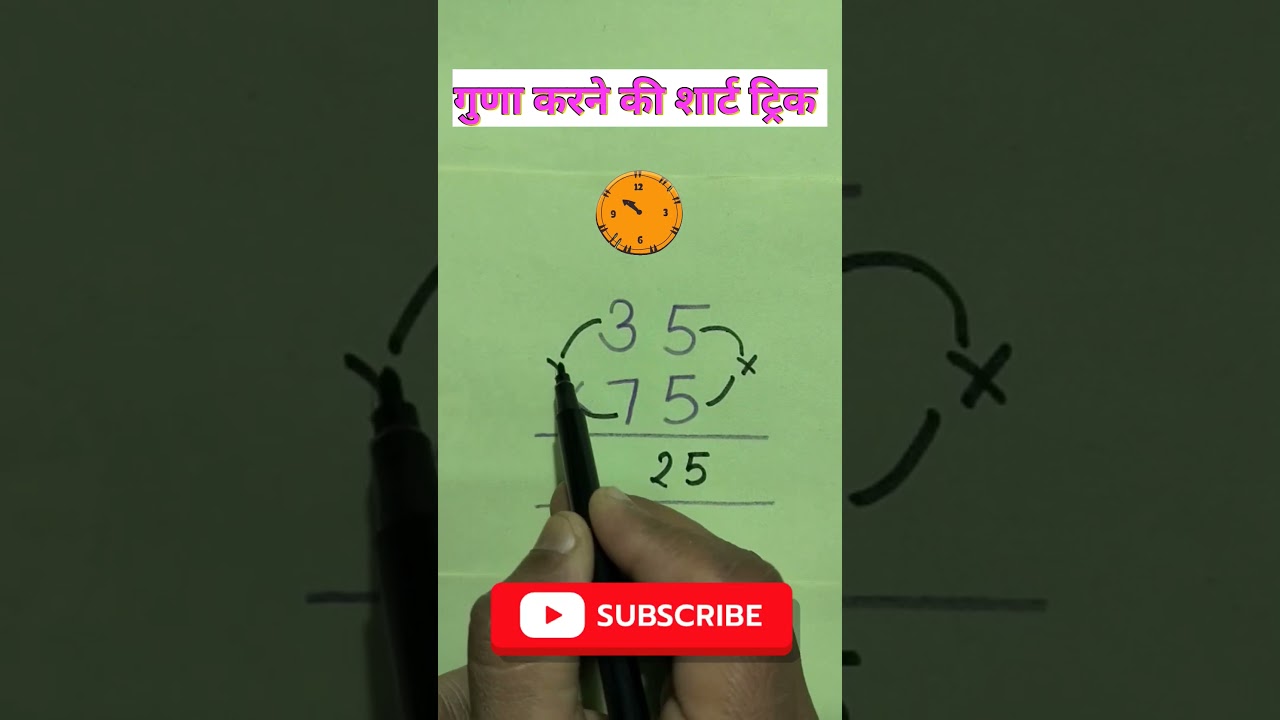 गुणा करने की शार्ट ट्रिक
12
9 3
6
3 5 ×
× 7 5
2 5
SUBSCRIBE